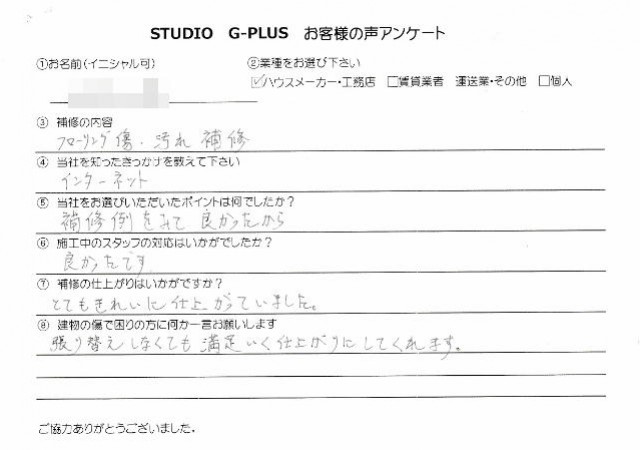 STUDIO G-PLUS お客様の声アンケート
①お名前(イニシャル可) ②業種をお選び下さい
☑ハウスメーカー・工務店 □賃貸業者 運送業・その他 □個人
③ 補修の内容
フローリング傷・汚れ 補修
④ 当社を知ったきっかけを教えて下さい
インターネット
⑤ 当社をお選びいただいたポイントは何でしたか?
補修例をみて良かったから
⑥ 施工中のスタッフの対応はいかがでしたか?
良かったです
⑦ 補修の仕上がりはいかがですか?
とてもきれいに仕上がっていました。
⑧ 建物の傷で困りの方に何か一言お願いします
張り替えしなくても満足いく仕上がりにしてくれます。
ご協力ありがとうございました.